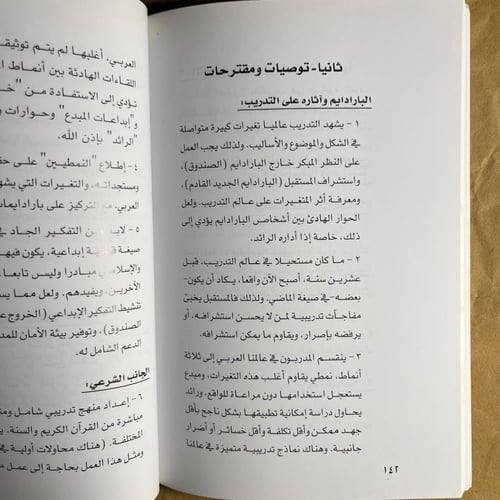 ثانيا- توصيات ومقترحات
البارادايم وآثاره على التدريب:
١ - يشهد التدريب عالميا تغيرات كبيرة متواصلة
في الشكل والموضوع والأساليب. ولذلك يجب العمل
على النظر المبكر خارج البارادايم (الصندوق)،
واستشراف المستقبل (البارادايم الجديد القادم)،
ومعرفة أثر المتغيرات على عالم التدريب. ولعل
الحوار الهادئ بين أشخاص البارادايم يؤدي إلى
ذلك، خاصة إذا أداره الرائد.
٢ - ما كان مستحيلا في عالم التدريب، قبل
عشرين سنة، أصبح الآن واقعا، يكاد أن يكون-
بعضه- في صيغة الماضي. ولذلك فالمستقبل يخبئ
مفاجآت تدريبية لمن لا يحسن استشرافه، أو
يرفضه بإصرار، ويقاوم ما يمكن استشرافه.
٣ - ينقسم المدربون في عالمنا العربي إلى ثلاثة
أنماط، نمطي يقاوم أغلب هذه التغيرات، ومبدع
يستعجل استخدامها دون مراعاة للواقع، ورائد
يحاول دراسة إمكانية تطبيقها بشكل ناجح بأقل
جهد ممكن وأقل تكلفة وأقل خسائر أو أضرار
جانبية. وهناك نماذج تدريبية متميزة في عالمنا
١٤٢
العربي، أغلبها لم يتم توثيق
اللقاءات الهادئة بين أنماط ا
تؤدي إلى الاستفادة من "خـ
و"إبداعات المبدع" وحوارات و
"الرائد" بإذن الله.
٤ - إطلاع "النمطيين" على حق
ومستجداته، والتغيرات التي يشه
العربي. مع التركيز على بارادايمات
٥ - لابد من التفكير الجاد في
صيغة إبداعية، يكون فيها
والإسلامي مبادرا وليس تابعا
الآخرين، ويفيدهم. ولعل مما يس
تنشيط التفكير الإبداعي (الخروج ع
الصندوق)، وتوفير بيئة الأمان للمد
الدعم الشامل له.
الجانب الشرعي:
٦ - إعداد منهج تدريبي شامل ومت
مباشرة من القرآن الكريم والسنة، ب
المختلفة. (هناك محاولات أولية في
ومثل هذا العمل بحاجة إلى عمل م